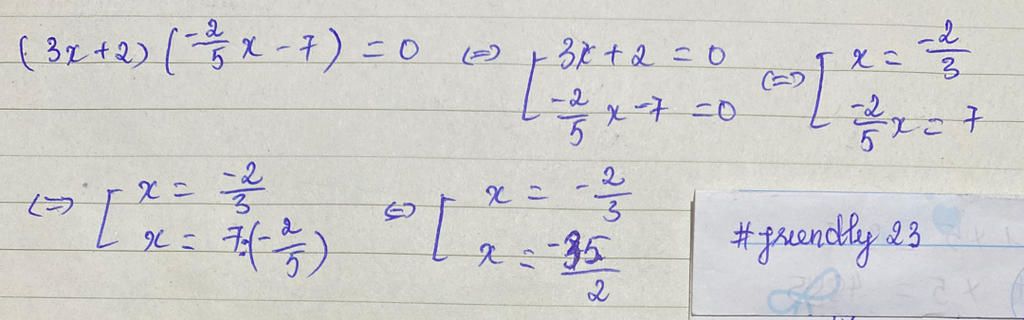 (3x+2)(-2/5 x - 7) = 0 ⇔ [ 3x+2 = 0 ; -2/5 x - 7 = 0 ⇔ [ x = -2/3 ; -2/5 x = 7
⇔ [ x = -2/3 ; x = 7:(-2/5) ⇔ [ x = -2/3 ; x = -35/2
#friendly 23